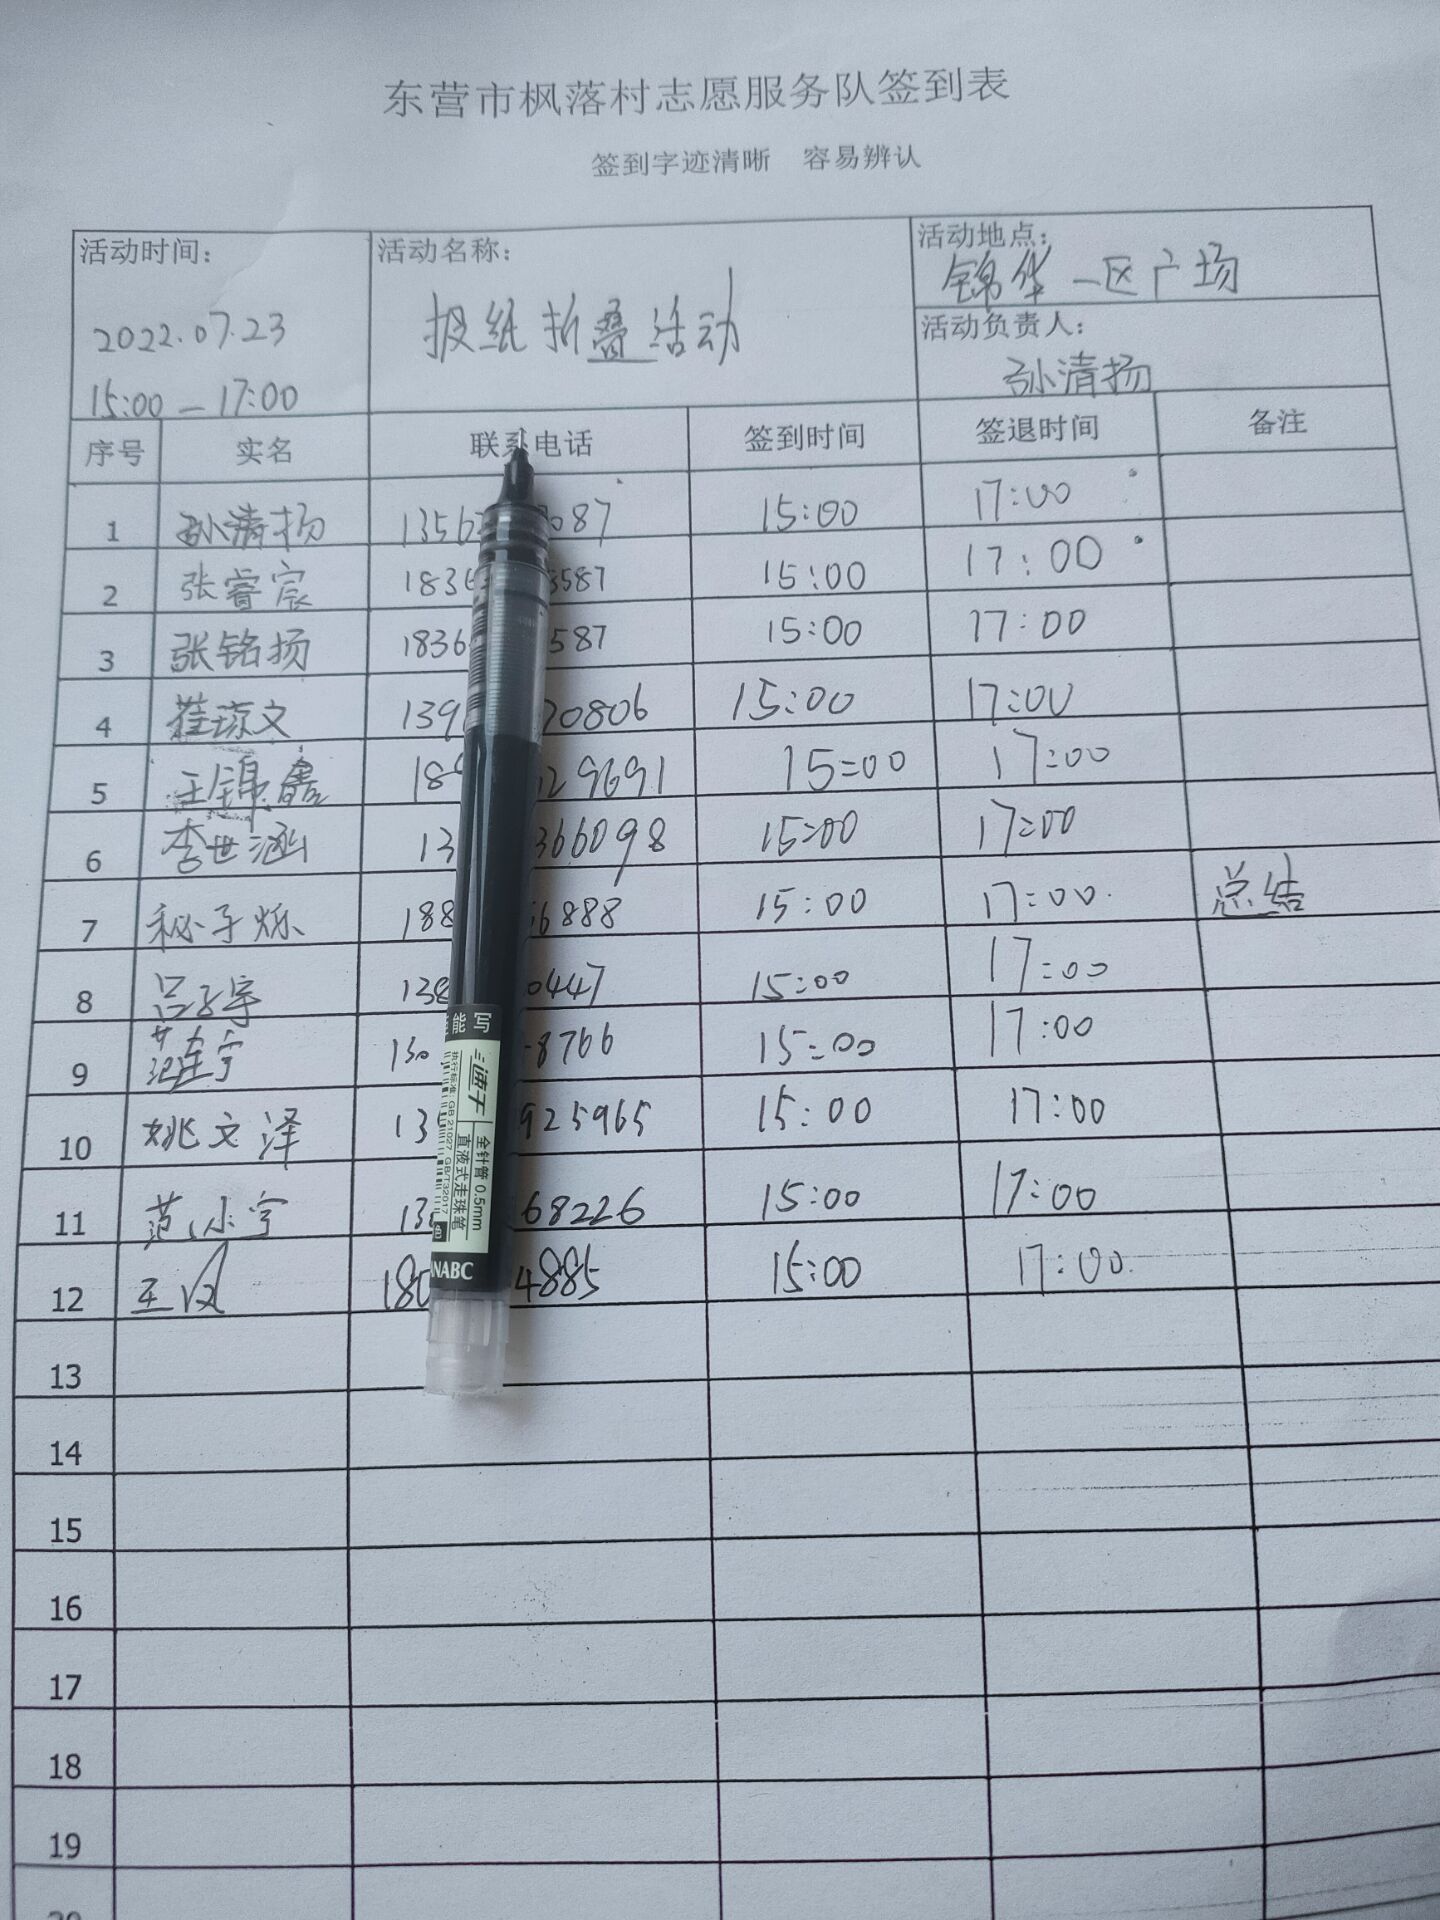 东营市枫落村志愿服务队签到表
签到字迹清晰 容易辨认
活动时间: 活动名称: 活动地点:
锦华一区广场
2022.07.23 报纸折叠活动 活动负责人:
15:00—17:00 孙清扬
序号 实名 联系电话 签到时间 签退时间 备注
1 孙清扬 1356 087 15:00 17:00
2 张睿宸 1836 3587 15:00 17:00
3 张铭扬 1836 587 15:00 17:00
4 崔琼文 139 20806 15:00 17:00
5 王锦鑫 18 29691 15:00 17:00
6 李世涵 13 366098 15:00 17:00
7 秘子烁 188 6888 15:00 17:00 总结
8 吕子宇 138 0447 15:00 17:00
9 范连宇 130 8766 15:00 17:00
10 姚文泽 13 925965 15:00 17:00
11 范小宇 13 68226 15:00 17:00
12 王凤 180 4885 15:00 17:00
13
14
15
16
17
18
19
能写
速干
全针管0.5mm
直液式走珠笔
执行标准:GB 21027 GB/T32017
NABC